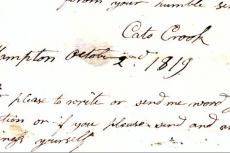 your humble se
Cato Crook
ampton Octobr 2nd 1819
please to write or send me word
tion or if you please send and
ings yourself